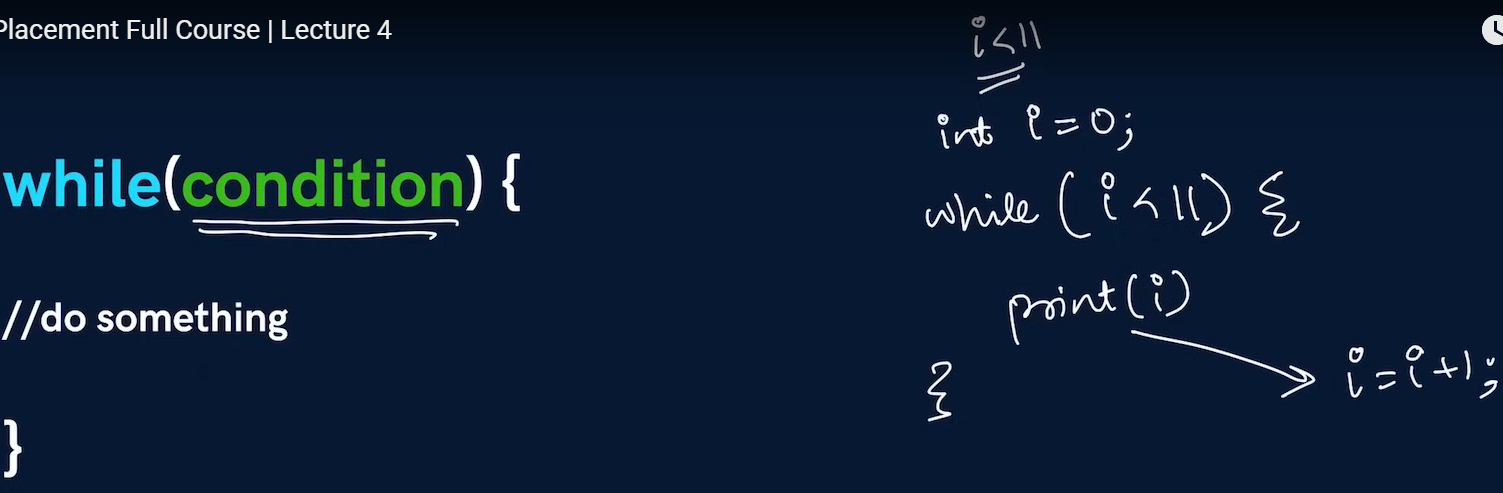 Placement Full Course | Lecture 4
while(condition) {
//do something
}
i<11
int i=0;
while (i<11) {
print(i)
i=i+1;
}